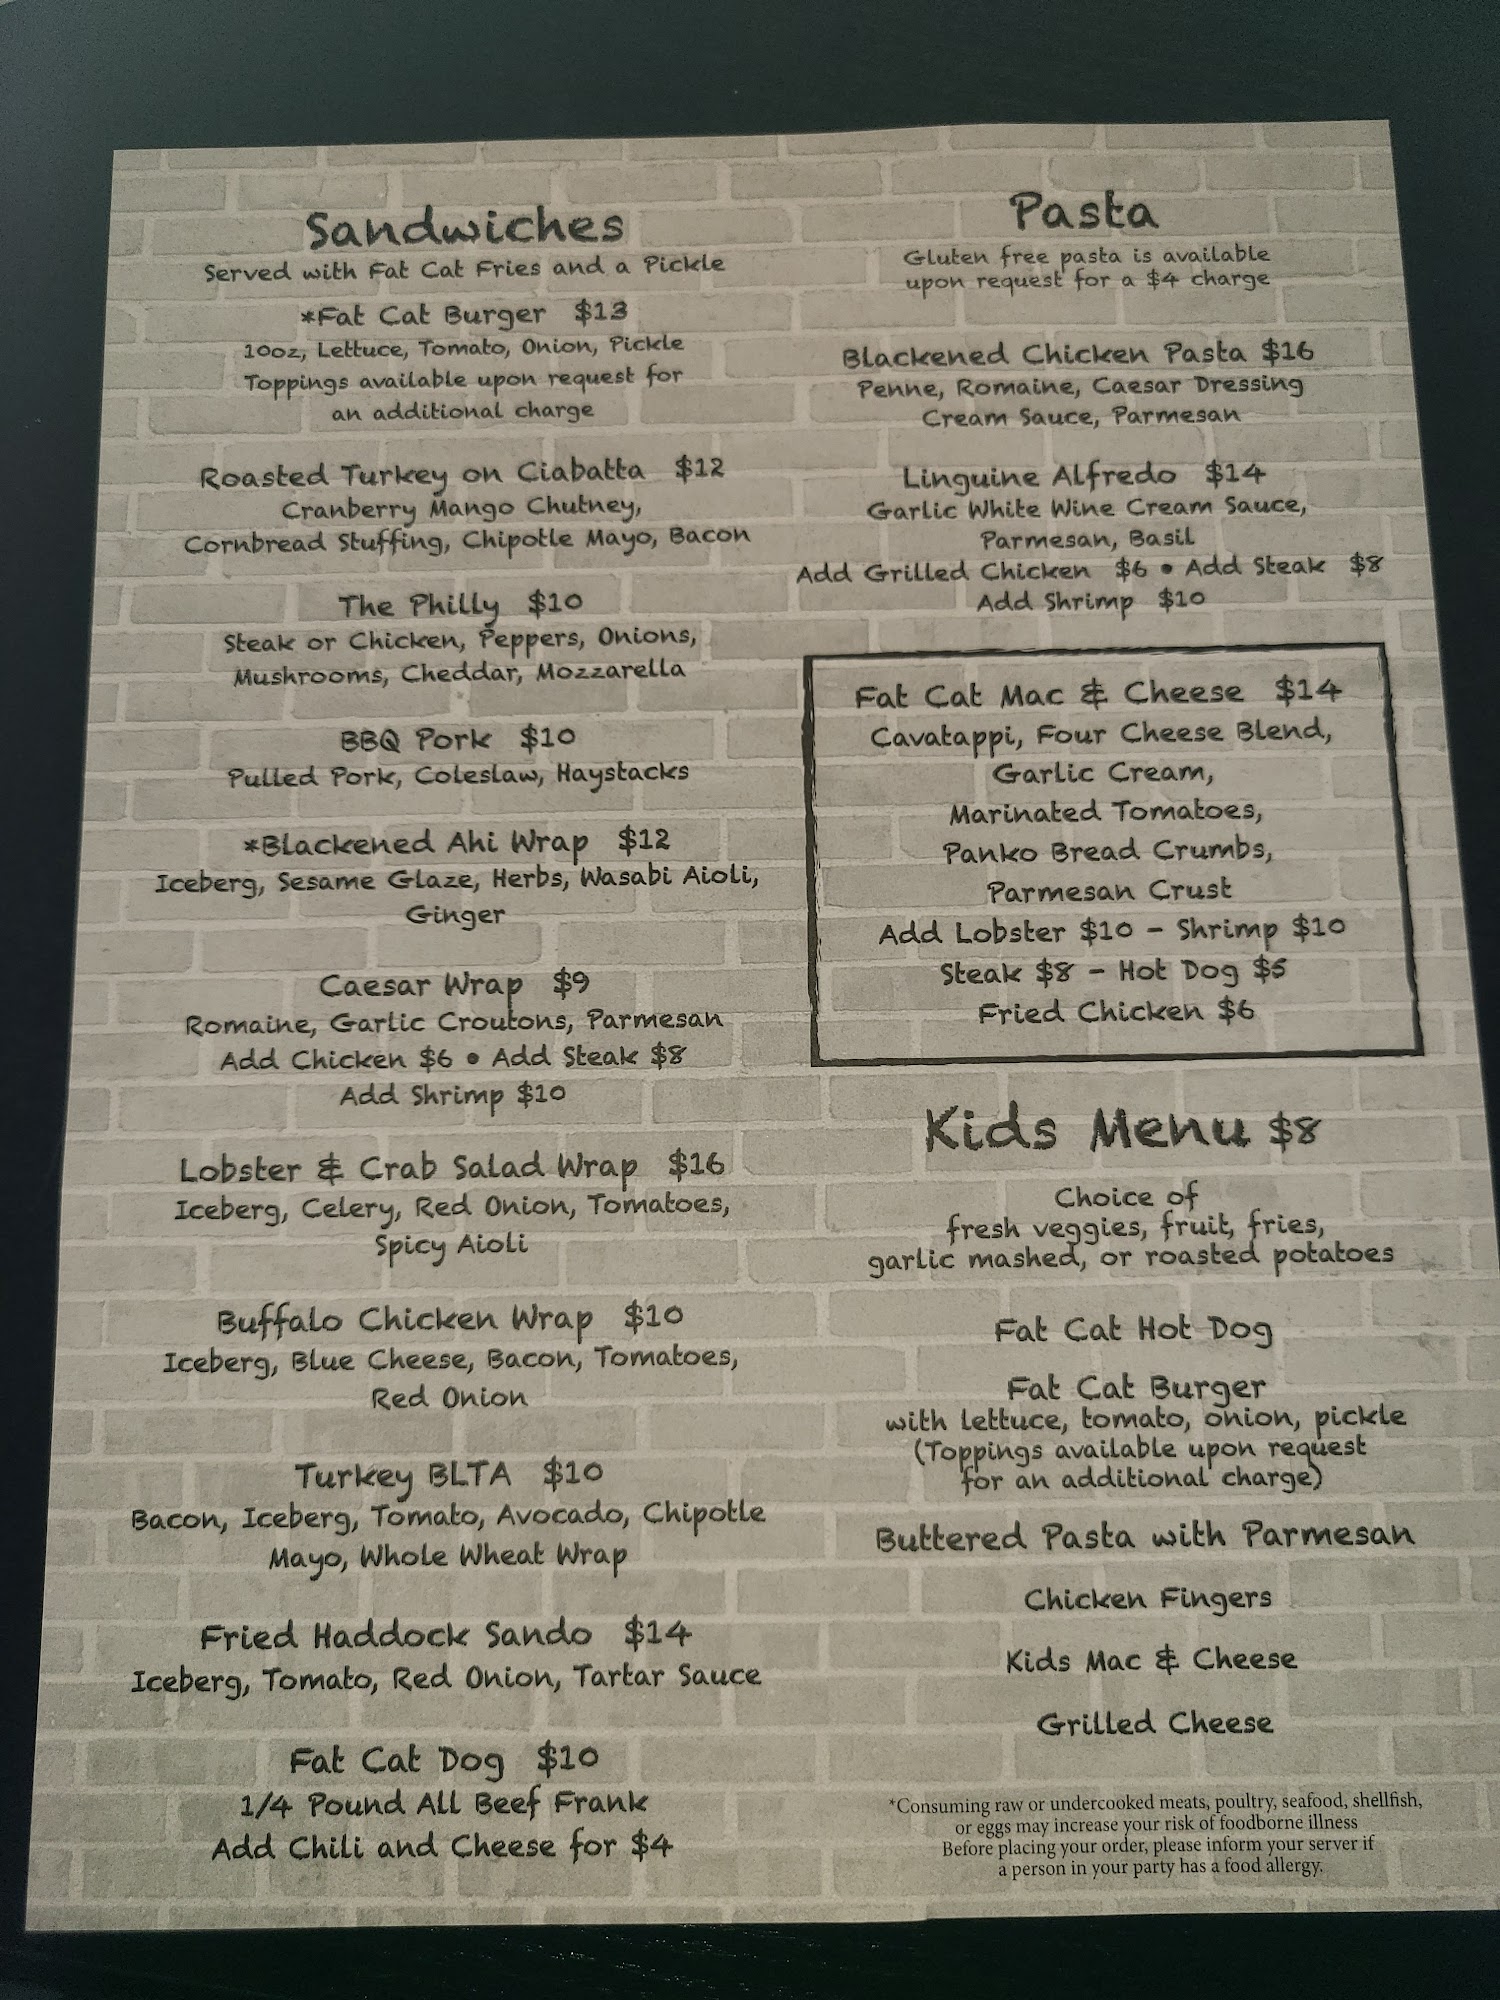 Sandwiches
Served with Fat Cat Fries and a Pickle
*Fat Cat Burger $13
10oz, Lettuce, Tomato, Onion, Pickle
Toppings available upon request for
an additional charge
Roasted Turkey on Ciabatta $12
Cranberry Mango Chutney,
Cornbread Stuffing, Chipotle Mayo, Bacon
The Philly $10
Steak or Chicken, Peppers, Onions,
Mushrooms, Cheddar, Mozzarella
BBQ Pork $10
Pulled Pork, Coleslaw, Haystacks
*Blackened Ahi Wrap $12
Iceberg, Sesame Glaze, Herbs, Wasabi Aioli,
Ginger
Caesar Wrap $9
Romaine, Garlic Croutons, Parmesan
Add Chicken $6 • Add Steak $8
Add Shrimp $10
Lobster & Crab Salad Wrap $16
Iceberg, Celery, Red Onion, Tomatoes,
Spicy Aioli
Buffalo Chicken Wrap $10
Iceberg, Blue Cheese, Bacon, Tomatoes,
Red Onion
Turkey BLTA $10
Bacon, Iceberg, Tomato, Avocado, Chipotle
Mayo, Whole Wheat Wrap
Fried Haddock Sando $14
Iceberg, Tomato, Red Onion, Tartar Sauce
Fat Cat Dog $10
1/4 Pound All Beef Frank
Add Chili and Cheese for $4
Pasta
Gluten free pasta is available
upon request for a $4 charge
Blackened Chicken Pasta $16
Penne, Romaine, Caesar Dressing
Cream Sauce, Parmesan
Linguine Alfredo $14
Garlic White Wine Cream Sauce,
Parmesan, Basil
Add Grilled Chicken $6 • Add Steak $8
Add Shrimp $10
Fat Cat Mac & Cheese $14
Cavatappi, Four Cheese Blend,
Garlic Cream,
Marinated Tomatoes,
Panko Bread Crumbs,
Parmesan Crust
Add Lobster $10 - Shrimp $10
Steak $8 - Hot Dog $5
Fried Chicken $6
Kids Menu $8
Choice of
fresh veggies, fruit, fries,
garlic mashed, or roasted potatoes
Fat Cat Hot Dog
Fat Cat Burger
with lettuce, tomato, onion, pickle
(Toppings available upon request
for an additional charge)
Buttered Pasta with Parmesan
Chicken Fingers
Kids Mac & Cheese
Grilled Cheese
*Consuming raw or undercooked meats, poultry, seafood, shellfish,
or eggs may increase your risk of foodborne illness
Before placing your order, please inform your server if
a person in your party has a food allergy.